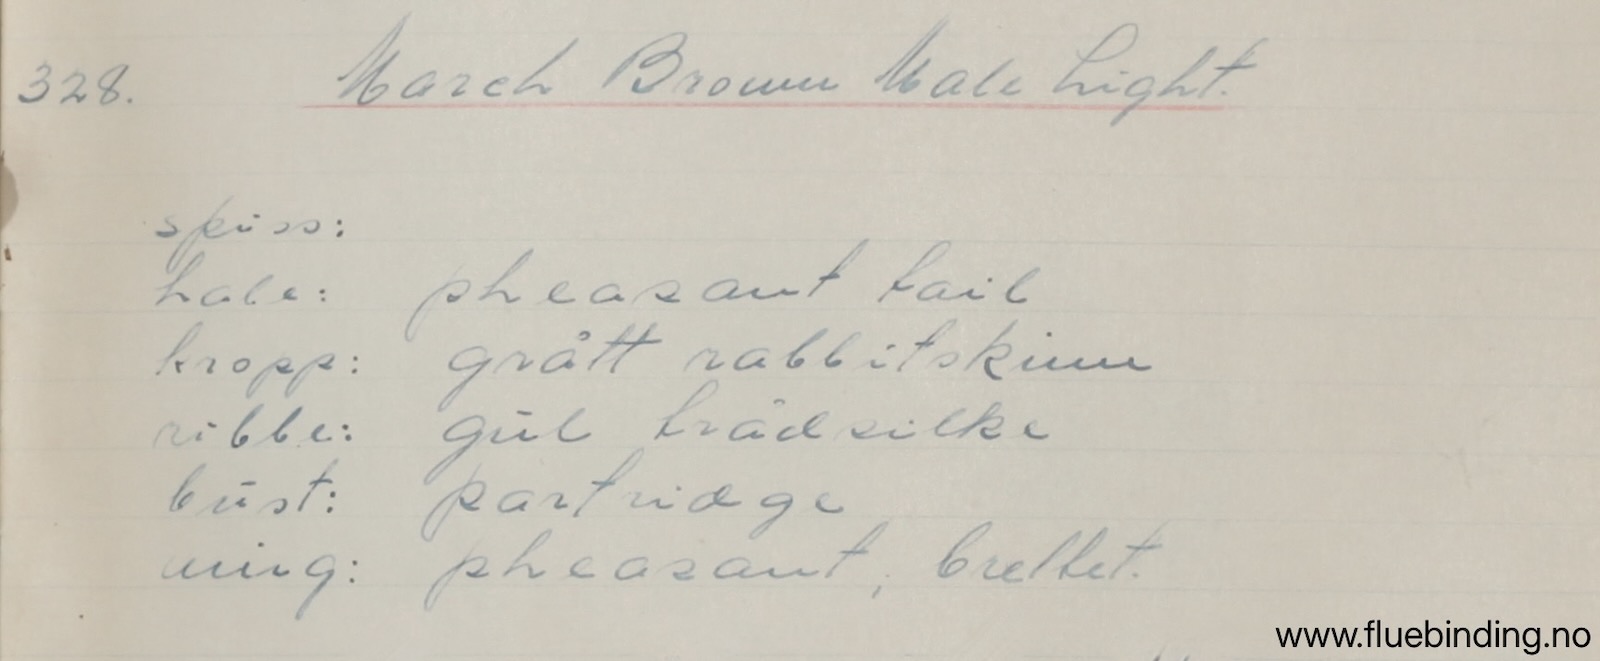 328. March Brown Male Light.
spiss:
hale: pheasant tail
kropp: grått rabbitskinn
ribbe: gul trådsilke
bust: partridge
wing: pheasant, brettet.
www.fluebinding.no